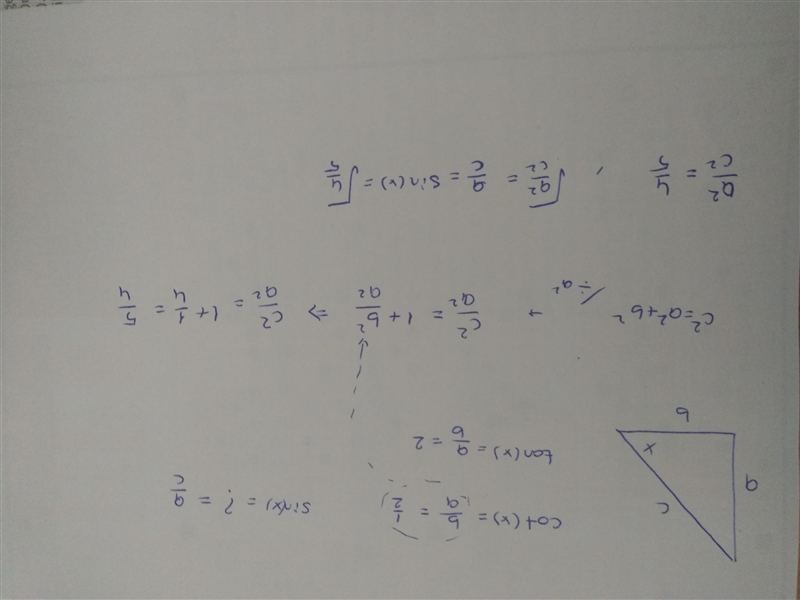 cot(x) = b/a = 1/2
sin(x) = ? = a/c
tan(x) = a/b = 2
a
c
x
b
c² = a² + b² /÷a² → c²/a² = 1 + b²/a² ⇒ c²/a² = 1 + 1/4 = 5/4
a²/c² = 4/5 , √(a²/c²) = a/c = sin(x) = √(4/5)